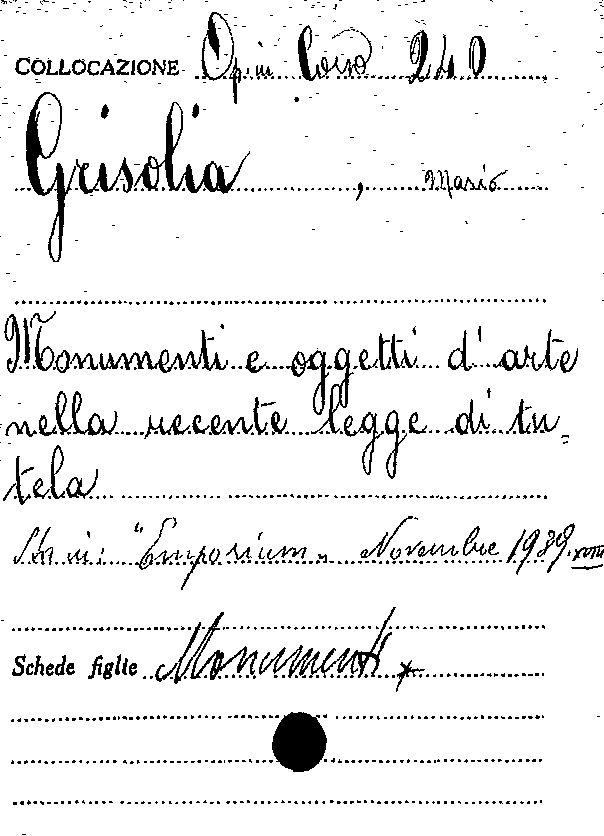 COLLOCAZIONE Op. in Corso 240
Grisolia, Mario
Monumenti e oggetti d'arte
nella recente legge di tu=
tela
Sta in: "Emporium" Novembre 1939. XVIII
Schede figlie Monumenti *